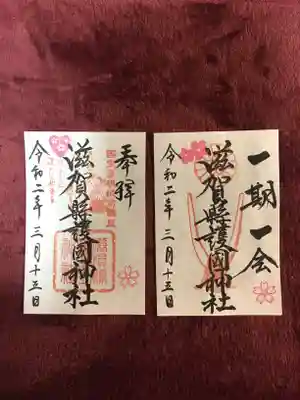 奉拝
滋賀縣護國神社
令和二年三月十五日
一期一会
滋賀縣護國神社
令和二年三月十五日